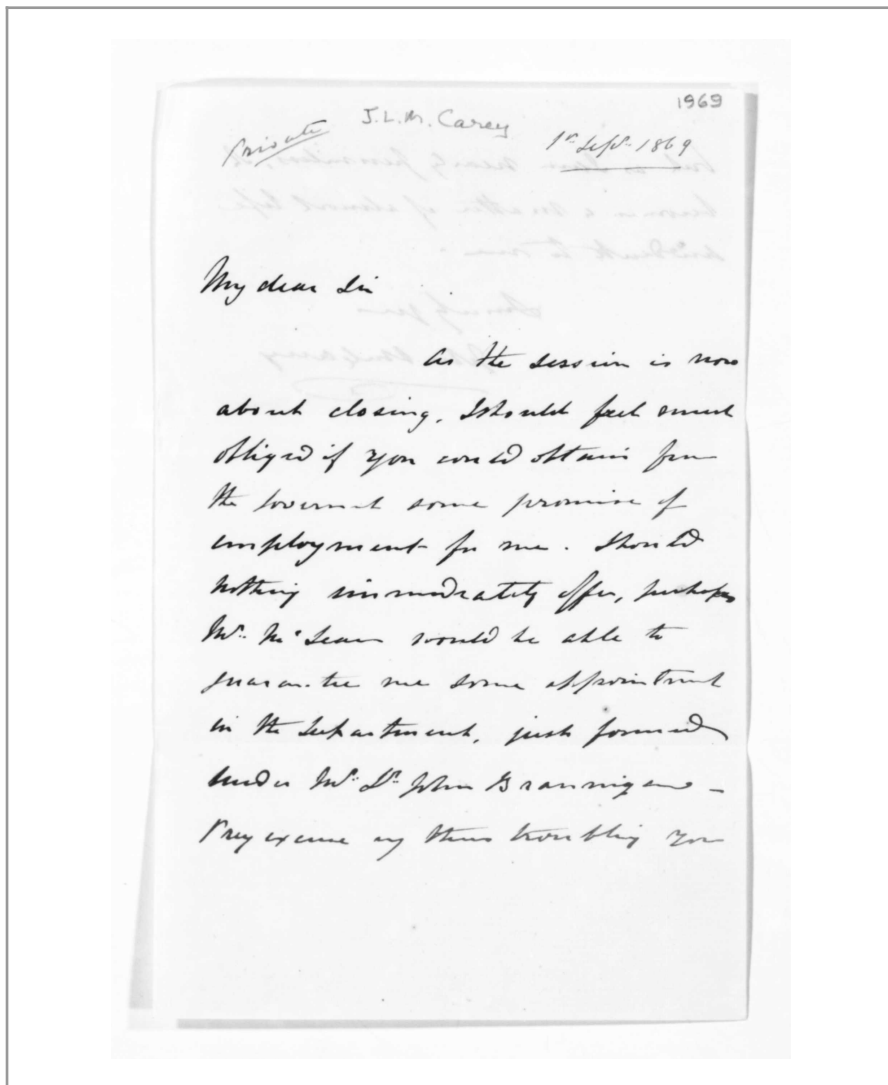 1969
J.L.M. Carey
Private
1st Septr 1869
My dear Sir
As the session is now
about closing, I should feel much
obliged if you could obtain from
the Governmt some promise of
employment for me. Should
nothing immediately offer, perhaps
Mr. McLean would be able to
guarantee me some appointment
in the Department, just formed
under Mr. St. John Brannigan —
Pray excuse my thus troubling you